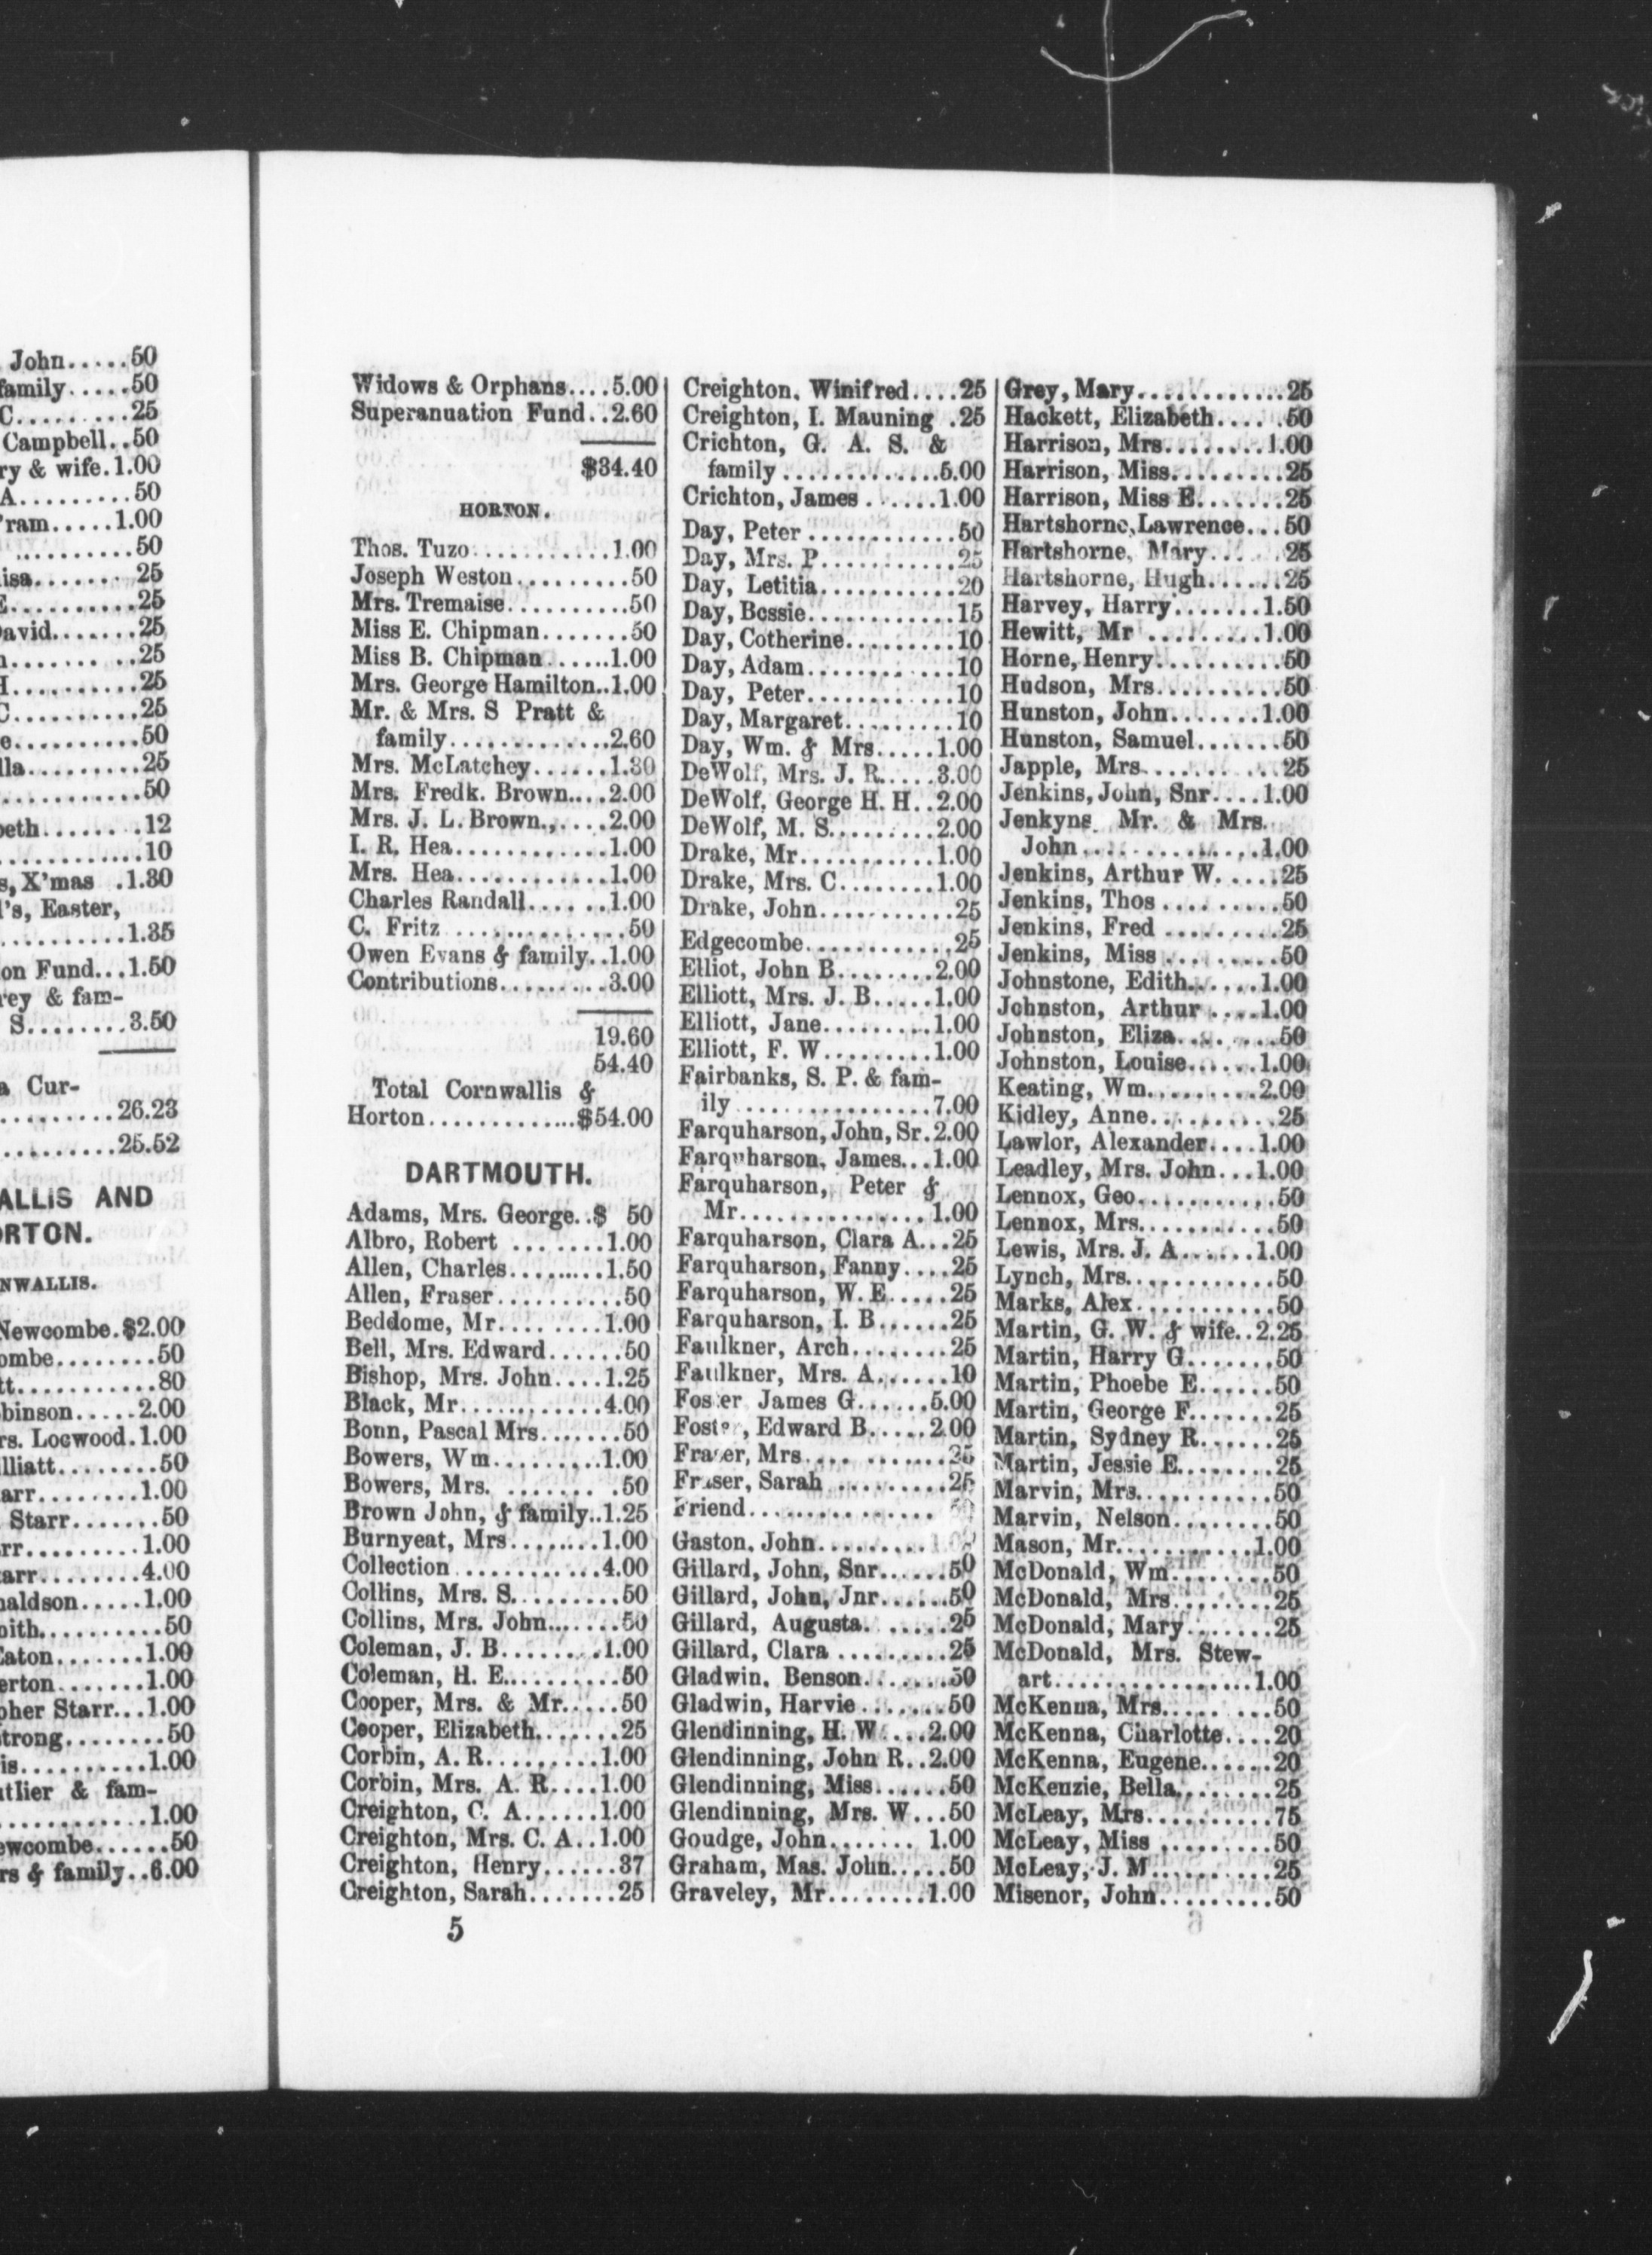 John.....50
family.....50
C.........25
Campbell..50
ry & wife.1.00
A.........50
'ram.....1.00
..........50
isa.......25
E..........25
avid.......25
.......25
H..........25
C..........25
e..........50
lla.........25
............50
beth.......12
............10
s, X'mas .1.30
l's, Easter,
..........1.35
on Fund...1.50
rey & fam-
S........3.50
a Cur-
.........26.23
.........25.52
ALLIS AND
ORTON.
NWALLIS.
Newcombe.$2.00
ombe........50
tt...........80
binson.....2.00
rs. Locwood.1.00
lliatt........50
arr........1.00
Starr.......50
rr.........1.00
arr........4.00
naldson.....1.00
oith..........50
Eaton.......1.00
erton.......1.00
pher Starr...1.00
strong........50
is..........1.00
utlier & fam-
............1.00
ewcombe......50
rs & family..6.00
Widows & Orphans....5.00
Superanuation Fund..2.60
$34.40
HORTON.
Thos. Tuzo............1.00
Joseph Weston.........50
Mrs. Tremaise..........50
Miss E. Chipman.......50
Miss B. Chipman......1.00
Mrs. George Hamilton..1.00
Mr. & Mrs. S Pratt &
family..............2.60
Mrs. McLatchey......1.30
Mrs. Fredk. Brown....2.00
Mrs. J. L. Brown.,....2.00
I. R. Hea.............1.00
Mrs. Hea.............1.00
Charles Randall.......1.00
C. Fritz ...............50
Owen Evans & family..1.00
Contributions.........3.00
19.60
54.40
Total Cornwallis &
Horton.............$54.00
DARTMOUTH.
Adams, Mrs. George..$ 50
Albro, Robert ........1.00
Allen, Charles.........1.50
Allen, Fraser...........50
Beddome, Mr.........1.00
Bell, Mrs. Edward......50
Bishop, Mrs. John....1.25
Black, Mr............4.00
Bonn, Pascal Mrs.......50
Bowers, Wm.........1.00
Bowers, Mrs. ........ .50
Brown John, & family..1.25
Burnyeat, Mrs........1.00
Collection.............4.00
Collins, Mrs. S..........50
Collins, Mrs. John.......50
Coleman, J. B.........1.00
Coleman, H. E..........50
Cooper, Mrs. & Mr.....50
Cooper, Elizabeth.......25
Corbin, A. R..........1.00
Corbin, Mrs. A. R....1.00
Creighton, C. A......1.00
Creighton, Mrs. C. A..1.00
Creighton, Henry......37
Creighton, Sarah.......25
5
Creighton, Winifred....25
Creighton, I. Mauning .25
Crichton, G. A. S. &
family.............5.00
Crichton, James ......1.00
Day, Peter .............50
Day, Mrs. P............25
Day, Letitia............20
Day, Bessie.............15
Day, Cotherine.........10
Day, Adam.............10
Day, Peter.............10
Day, Margaret..........10
Day, Wm. & Mrs.....1.00
DeWolf, Mrs. J. R.....3.00
DeWolf, George H. H..2.00
DeWolf, M. S.........2.00
Drake, Mr...........1.00
Drake, Mrs. C........1.00
Drake, John...........25
Edgecombe............25
Elliot, John B........2.00
Elliott, Mrs. J. B.....1.00
Elliott, Jane.........1.00
Elliott, F. W.........1.00
Fairbanks, S. P. & fam-
ily................7.00
Farquharson, John, Sr.2.00
Farquharson, James...1.00
Farquharson, Peter &
Mr................1.00
Farquharson, Clara A...25
Farquharson, Fanny....25
Farquharson, W. E.....25
Farquharson, I. B......25
Faulkner, Arch.........25
Faulkner, Mrs. A.......10
Foster James G......5.00
Foster, Edward B.....2.00
Fraser, Mrs............25
Fraser, Sarah ..........25
Friend...............
Gaston, John.........1.00
Gillard, John, Snr......50
Gillard, John, Jnr......50
Gillard, Augusta. ......25
Gillard, Clara ..........25
Gladwin, Benson........50
Gladwin, Harvie........50
Glendinning, H. W....2.00
Glendinning, John R..2.00
Glendinning, Miss.......50
Glendinning, Mrs. W...50
Goudge, John....... 1.00
Graham, Mas. John.....50
Graveley, Mr........1.00
Grey, Mary.............25
Hackett, Elizabeth......50
Harrison, Mrs........1.00
Harrison, Miss..........25
Harrison, Miss E........25
Hartshorne, Lawrence...50
Hartshorne, Mary.......25
Hartshorne, Hugh.......25
Harvey, Harry.......1.50
Hewitt, Mr .........1.00
Horne, Henry...........50
Hudson, Mrs...........50
Hunston, John.......1.00
Hunston, Samuel.......50
Japple, Mrs............25
Jenkins, John, Snr....1.00
Jenkyns Mr. & Mrs.
John...............1.00
Jenkins, Arthur W.....25
Jenkins, Thos .........50
Jenkins, Fred .........25
Jenkins, Miss .........50
Johnstone, Edith.......1.00
Johnston, Arthur ....1.00
Johnston, Eliza.........50
Johnston, Louise......1.00
Keating, Wm.........2.00
Kidley, Anne..........25
Lawlor, Alexander....1.00
Leadley, Mrs. John...1.00
Lennox, Geo...........50
Lennox, Mrs...........50
Lewis, Mrs. J. A......1.00
Lynch, Mrs............50
Marks, Alex...........50
Martin, G. W. & wife..2.25
Martin, Harry G.......50
Martin, Phoebe E......50
Martin, George F.......25
Martin, Sydney R......25
Martin, Jessie E........25
Marvin, Mrs...........50
Marvin, Nelson........50
Mason, Mr...........1.00
McDonald, Wm........50
McDonald, Mrs........25
McDonald, Mary.......25
McDonald, Mrs. Stew-
art................1.00
McKenna, Mrs.........50
McKenna, Charlotte....20
McKenna, Eugene......20
McKenzie, Bella........25
McLeay, Mrs..........75
McLeay, Miss .........50
McLeay, J. M..........25
Misenor, John.........50